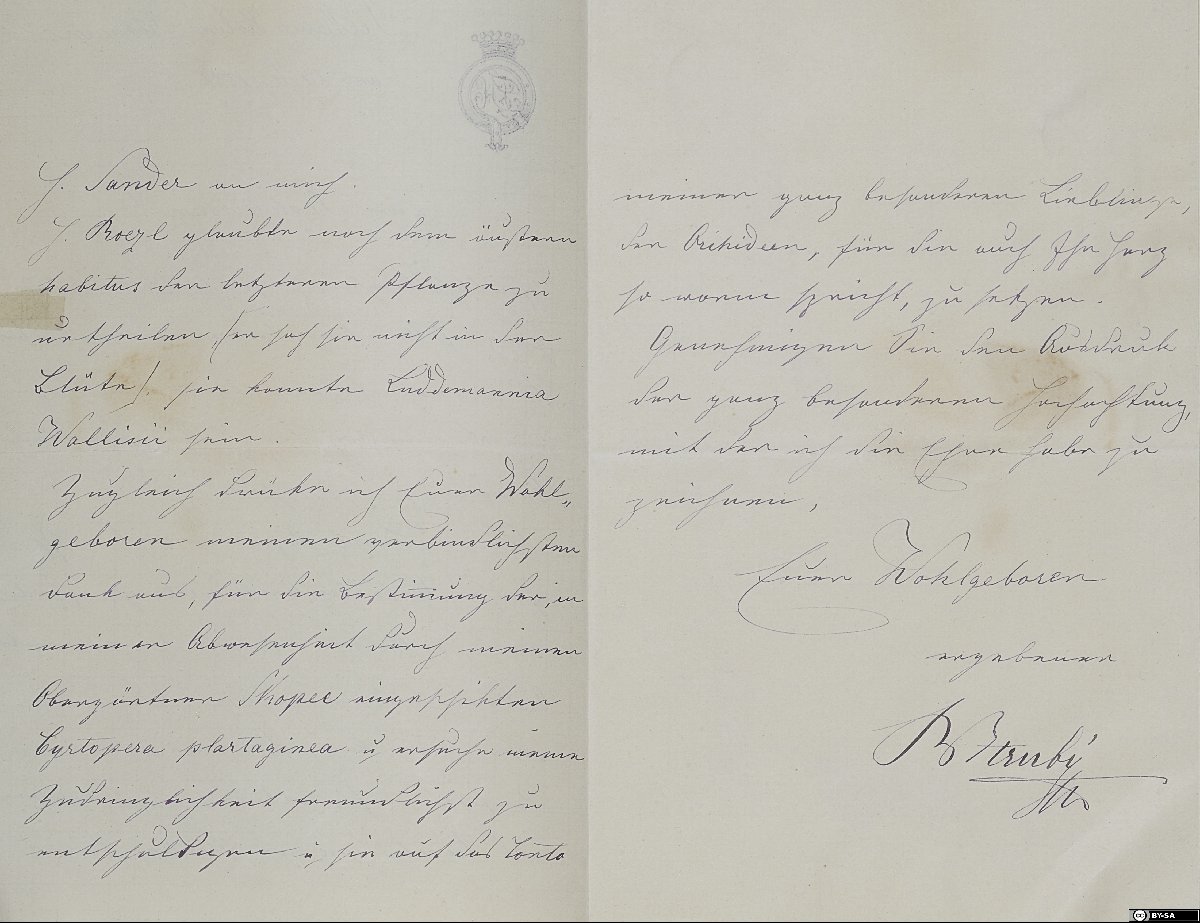 H. Sander an mich.
H. Roezl glaubte nach dem äußern
habitus der letzteren Pflanze zu
urtheilen (er sah sie nicht in der
Blüte), sie konnte Luddemannia
Wallisii sein.
Zugleich drücke ich Euer Wohl=
geboren meinen verbindlichsten
Dank aus, für die Bestimmung der, in
meiner Abwesenheit durch meinen
Obergärtner Skopec eingeschikten
Cyrtopera plantaginea u ersuche meine
Zudringlichkeit freundlichst zu
entschuldigen u sie auf das Conto
meiner ganz besonderen Lieblinge,
der Orchideen, für die auch Ihr Herz
so warm spricht, zu setzen.
Genehmigen Sie den Ausdruck
der ganz besonderen Hochachtung,
mit der ich die Ehre habe zu
zeichnen,
Euer Wohlgeboren
ergebener
B Hruby
BY-SA